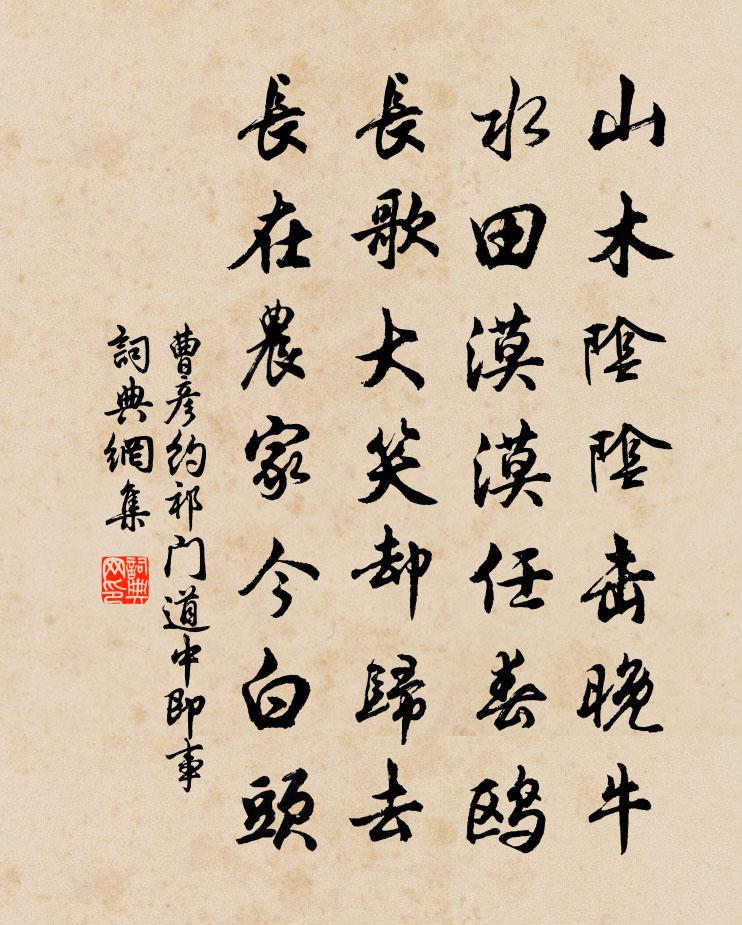 山木陰陰晚牛
水田漠漠任春鷗
長歌大笑却歸去
長在農家今白頭
曹彦約祁門道中即事
詞典網集
詞典
网印